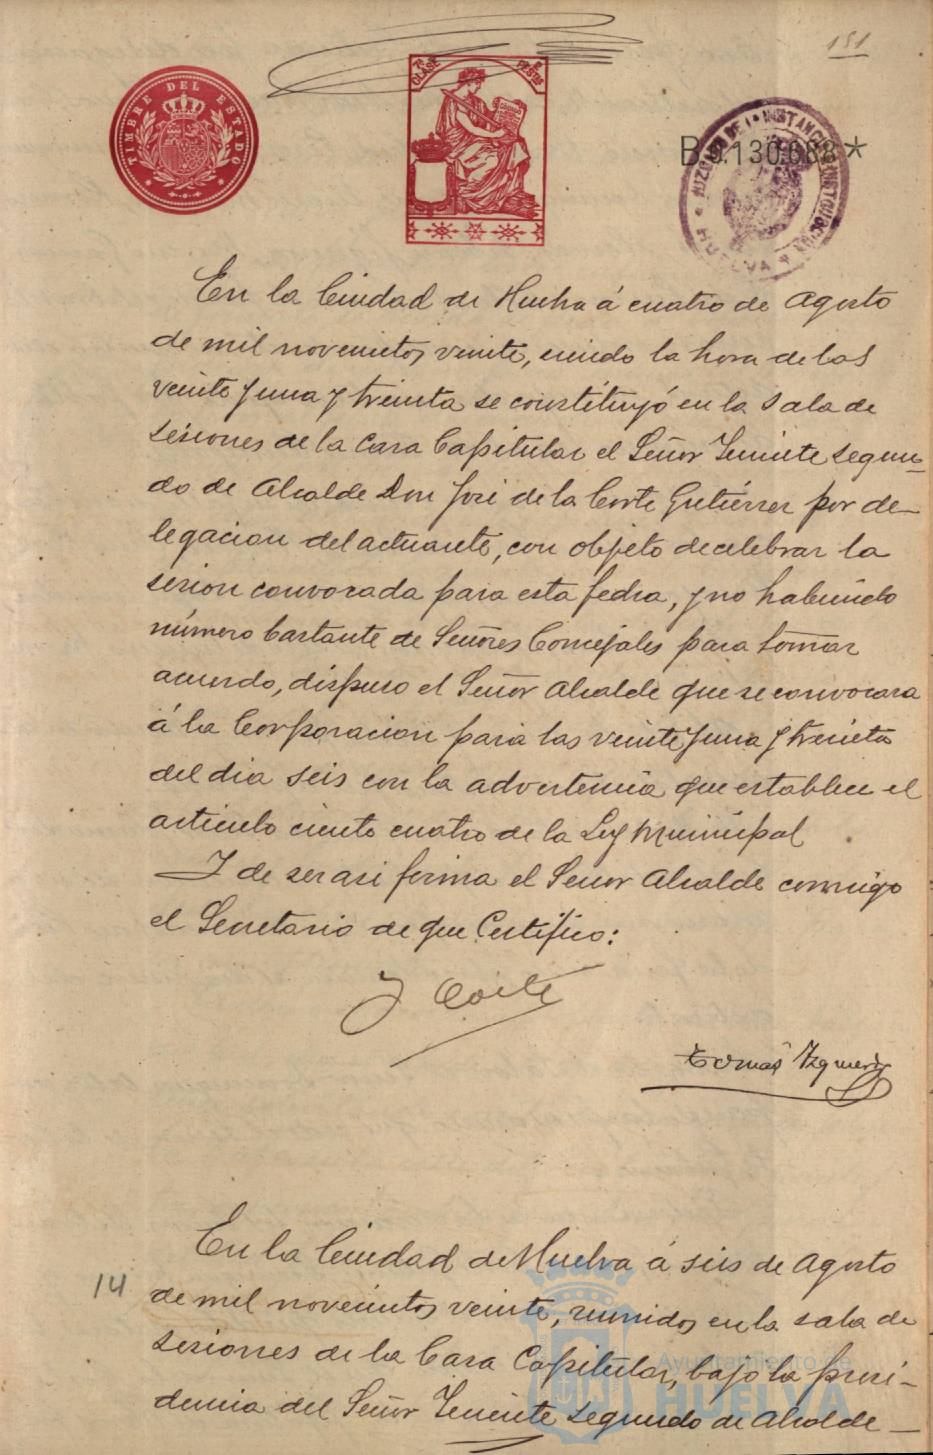 151
TIMBRE DEL ESTADO
7ª CLASE
PESETAS
B.0.130.688*
JUZGADO DE 1ª INSTANCIA E INSTRUCCION
HUELVA
En la Ciudad de Huelva á cuatro de Agosto
de mil novecientos veinte, siendo la hora de las
veinte y una y treinta se constituyó en la Sala de
sesiones de la Casa Capitular el Señor Teniente segun-
do de Alcalde Don José de la Corte Gutiérrez por de-
legacion del actuante, con objeto de celebrar la
sesion convocada para esta fecha, y no habiendo
número bastante de Señores Concejales para tomar
acuerdo, dispuso el Señor Alcalde que se convocara
á la Corporacion para las veinte y una y treinta
del dia seis con la advertencia que establece el
articulo ciento cuatro de la Ley Municipal
Y de ser asi firma el Señor Alcalde conmigo
el Secretario de que Certifico:
J Corte
Tomás Izquierdo
En la Ciudad de Huelva á seis de Agosto
14
de mil novecientos veinte, reunidos en la sala de
sesiones de la Casa Capitular, bajo la presi-
dencia del Señor Teniente segundo de Alcalde-
Ayuntamiento de
HUELVA